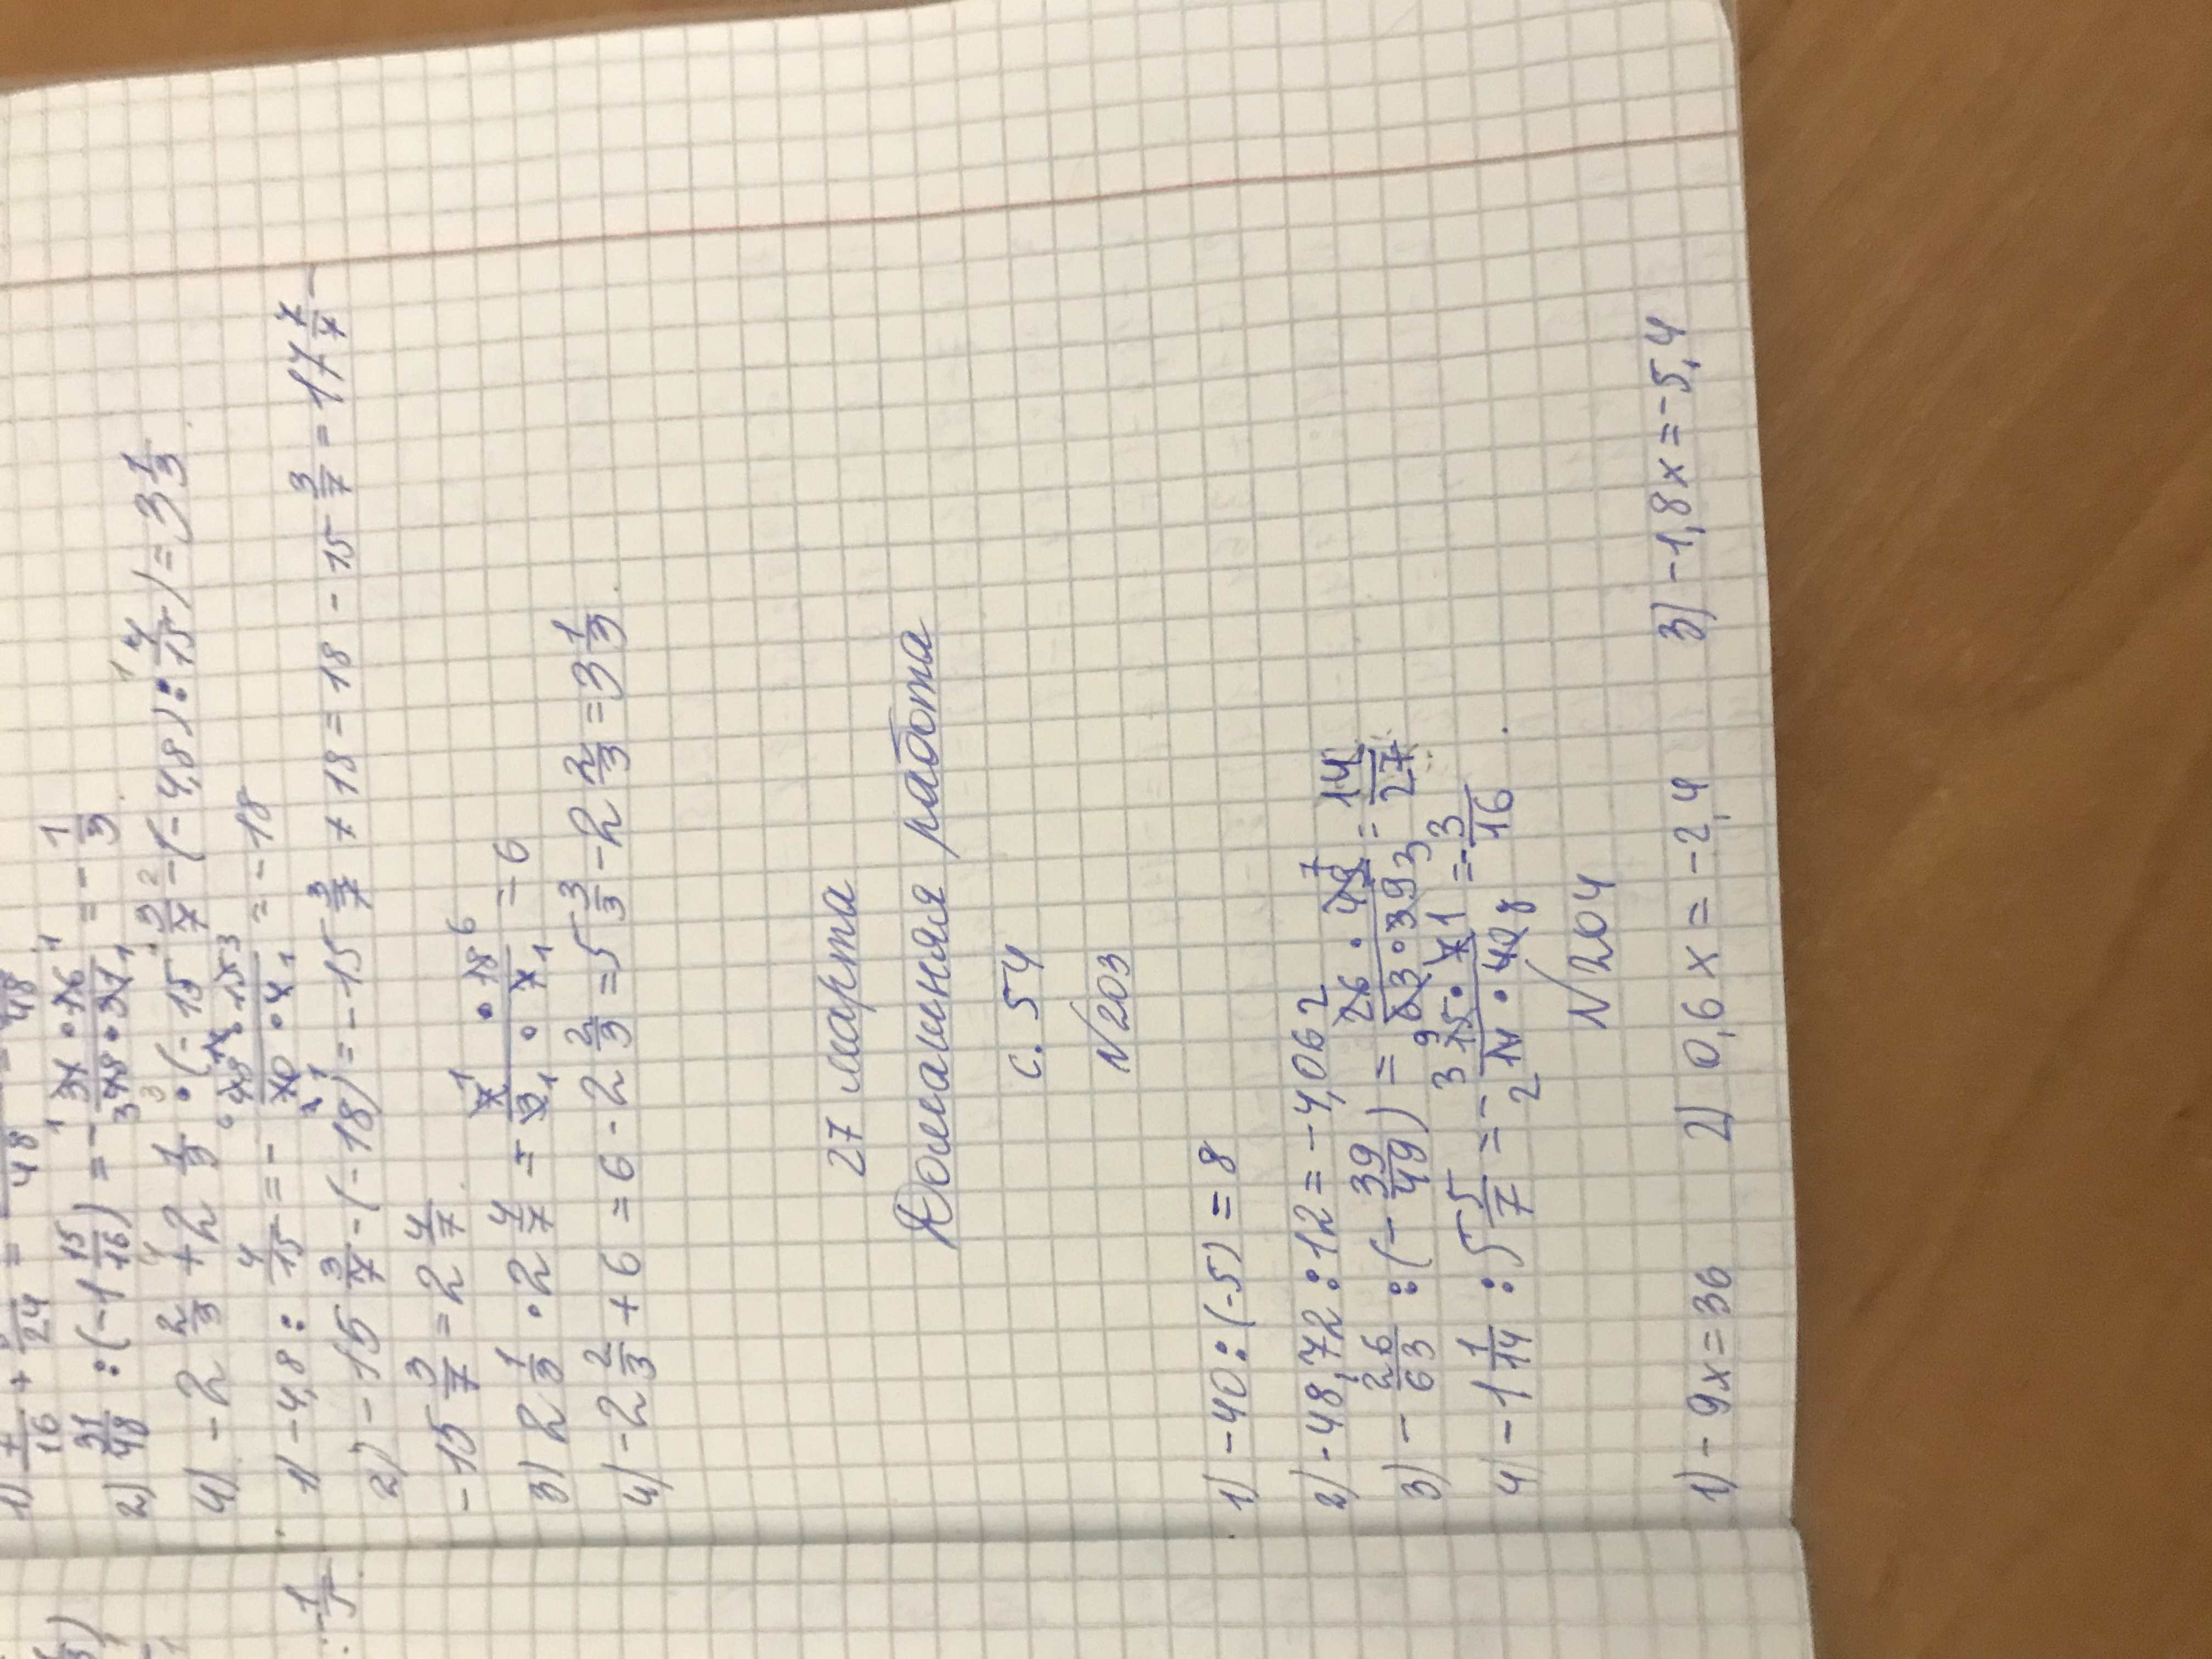 1) 7/16 + 5/24 = 48 = 48
2) 31/48 : (-1 15/16) = - 31 • 16 / 48 • 31 = - 1/3
4) -2 2/3 + 2 1/3 • (-15 3/7 - (-4,8) : 4/15) = 3 1/3
1) -4,8 : 4/15 = - 48 • 15 / 10 • 4 = -18
2) -15 3/7 - (-18) = -15 3/7 + 18 = 18 - 15 3/7 = 17 7/7 -
-15 3/7 = 2 4/7
3) 2 1/3 • 2 4/7 = 7 • 18 / 3 • 7 = 6
4) -2 2/3 + 6 = 6 - 2 2/3 = 5 3/3 - 2 2/3 = 3 1/3
27 марта
Домашняя работа
с. 54
№203
1) -40 : (-5) = 8
2) -48,72 : 12 = -4,06
3) - 26/63 : (- 39/49) = 26 • 49 / 63 • 39 = 14/27
4) -1 1/14 : 5 5/7 = - 15 • 7 / 14 • 40 = - 3/16
№204
1) -9x = 36 2) 0,6x = -2,4 3) -1,8x = -5,4